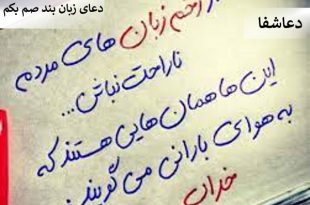 دعای زبان بند صم بکم
دعاشفا
از زخم زبان های مردم
ناراحت نباش...
این ها همان هایی هستند که
به هوای بارانی می گویند
خراب